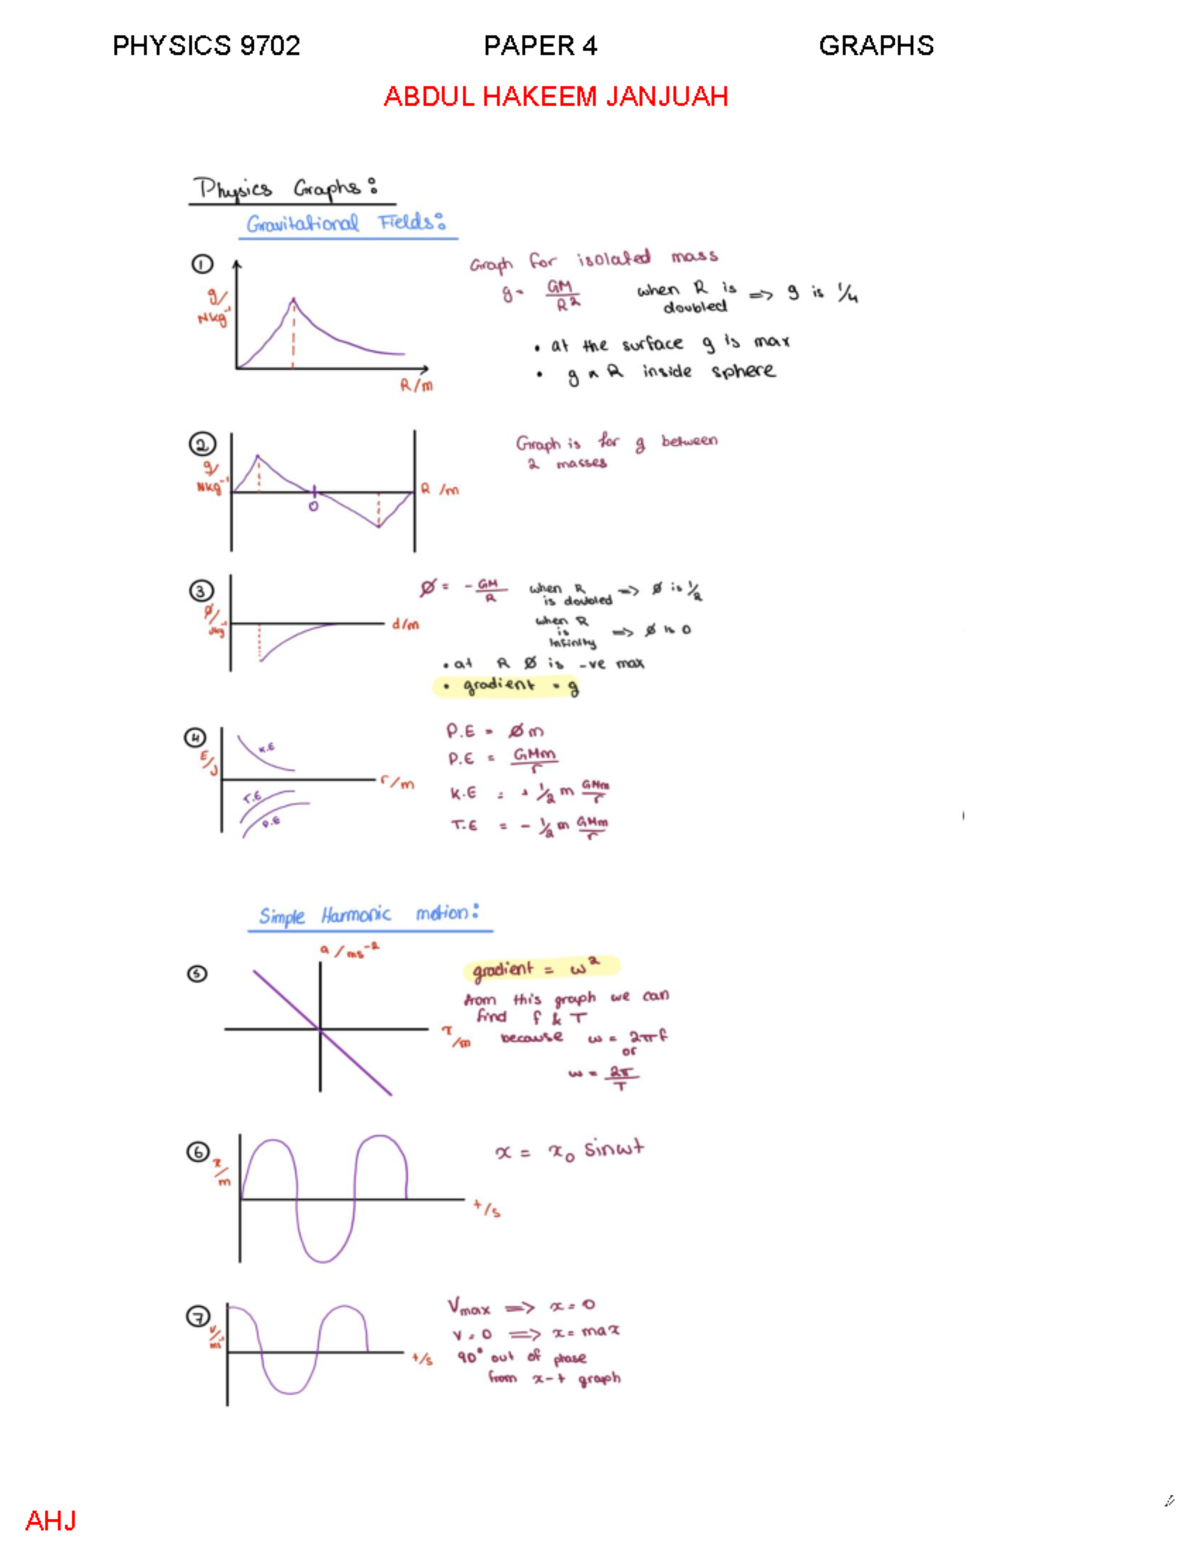 PHYSICS 9702 PAPER 4 GRAPHS
ABDUL HAKEEM JANJUAH
Physics Graphs:
Gravitational Fields:
① Graph for isolated mass
g/ Nkg⁻¹
g = GM/R² when R is doubled => g is 1/4
• at the surface g is max
• g ∝ R inside sphere
R/m
② Graph is for g between
2 masses
g/ Nkg⁻¹
R/m
0
③ Ø = -GM/R when R is doubled => Ø is 1/2
Ø/ Jkg⁻¹
d/m
when R is infinity => Ø is 0
• at R Ø is -ve max
• gradient = g
④ P.E = Øm
E/J
K.E
P.E = GMm/r
r/m
T.E
K.E = + 1/2 m GMm/r
P.E
T.E = - 1/2 m GMm/r
Simple Harmonic motion:
a/ms⁻²
⑤ gradient = ω²
from this graph we can
find f & T
x/m
because ω = 2πf
or
ω = 2π/T
⑥ x = x₀ sinωt
x/m
t/s
⑦ Vmax => x = 0
v/ms⁻¹
v = 0 => x = max
t/s
90° out of phase
from x-t graph
AHJ